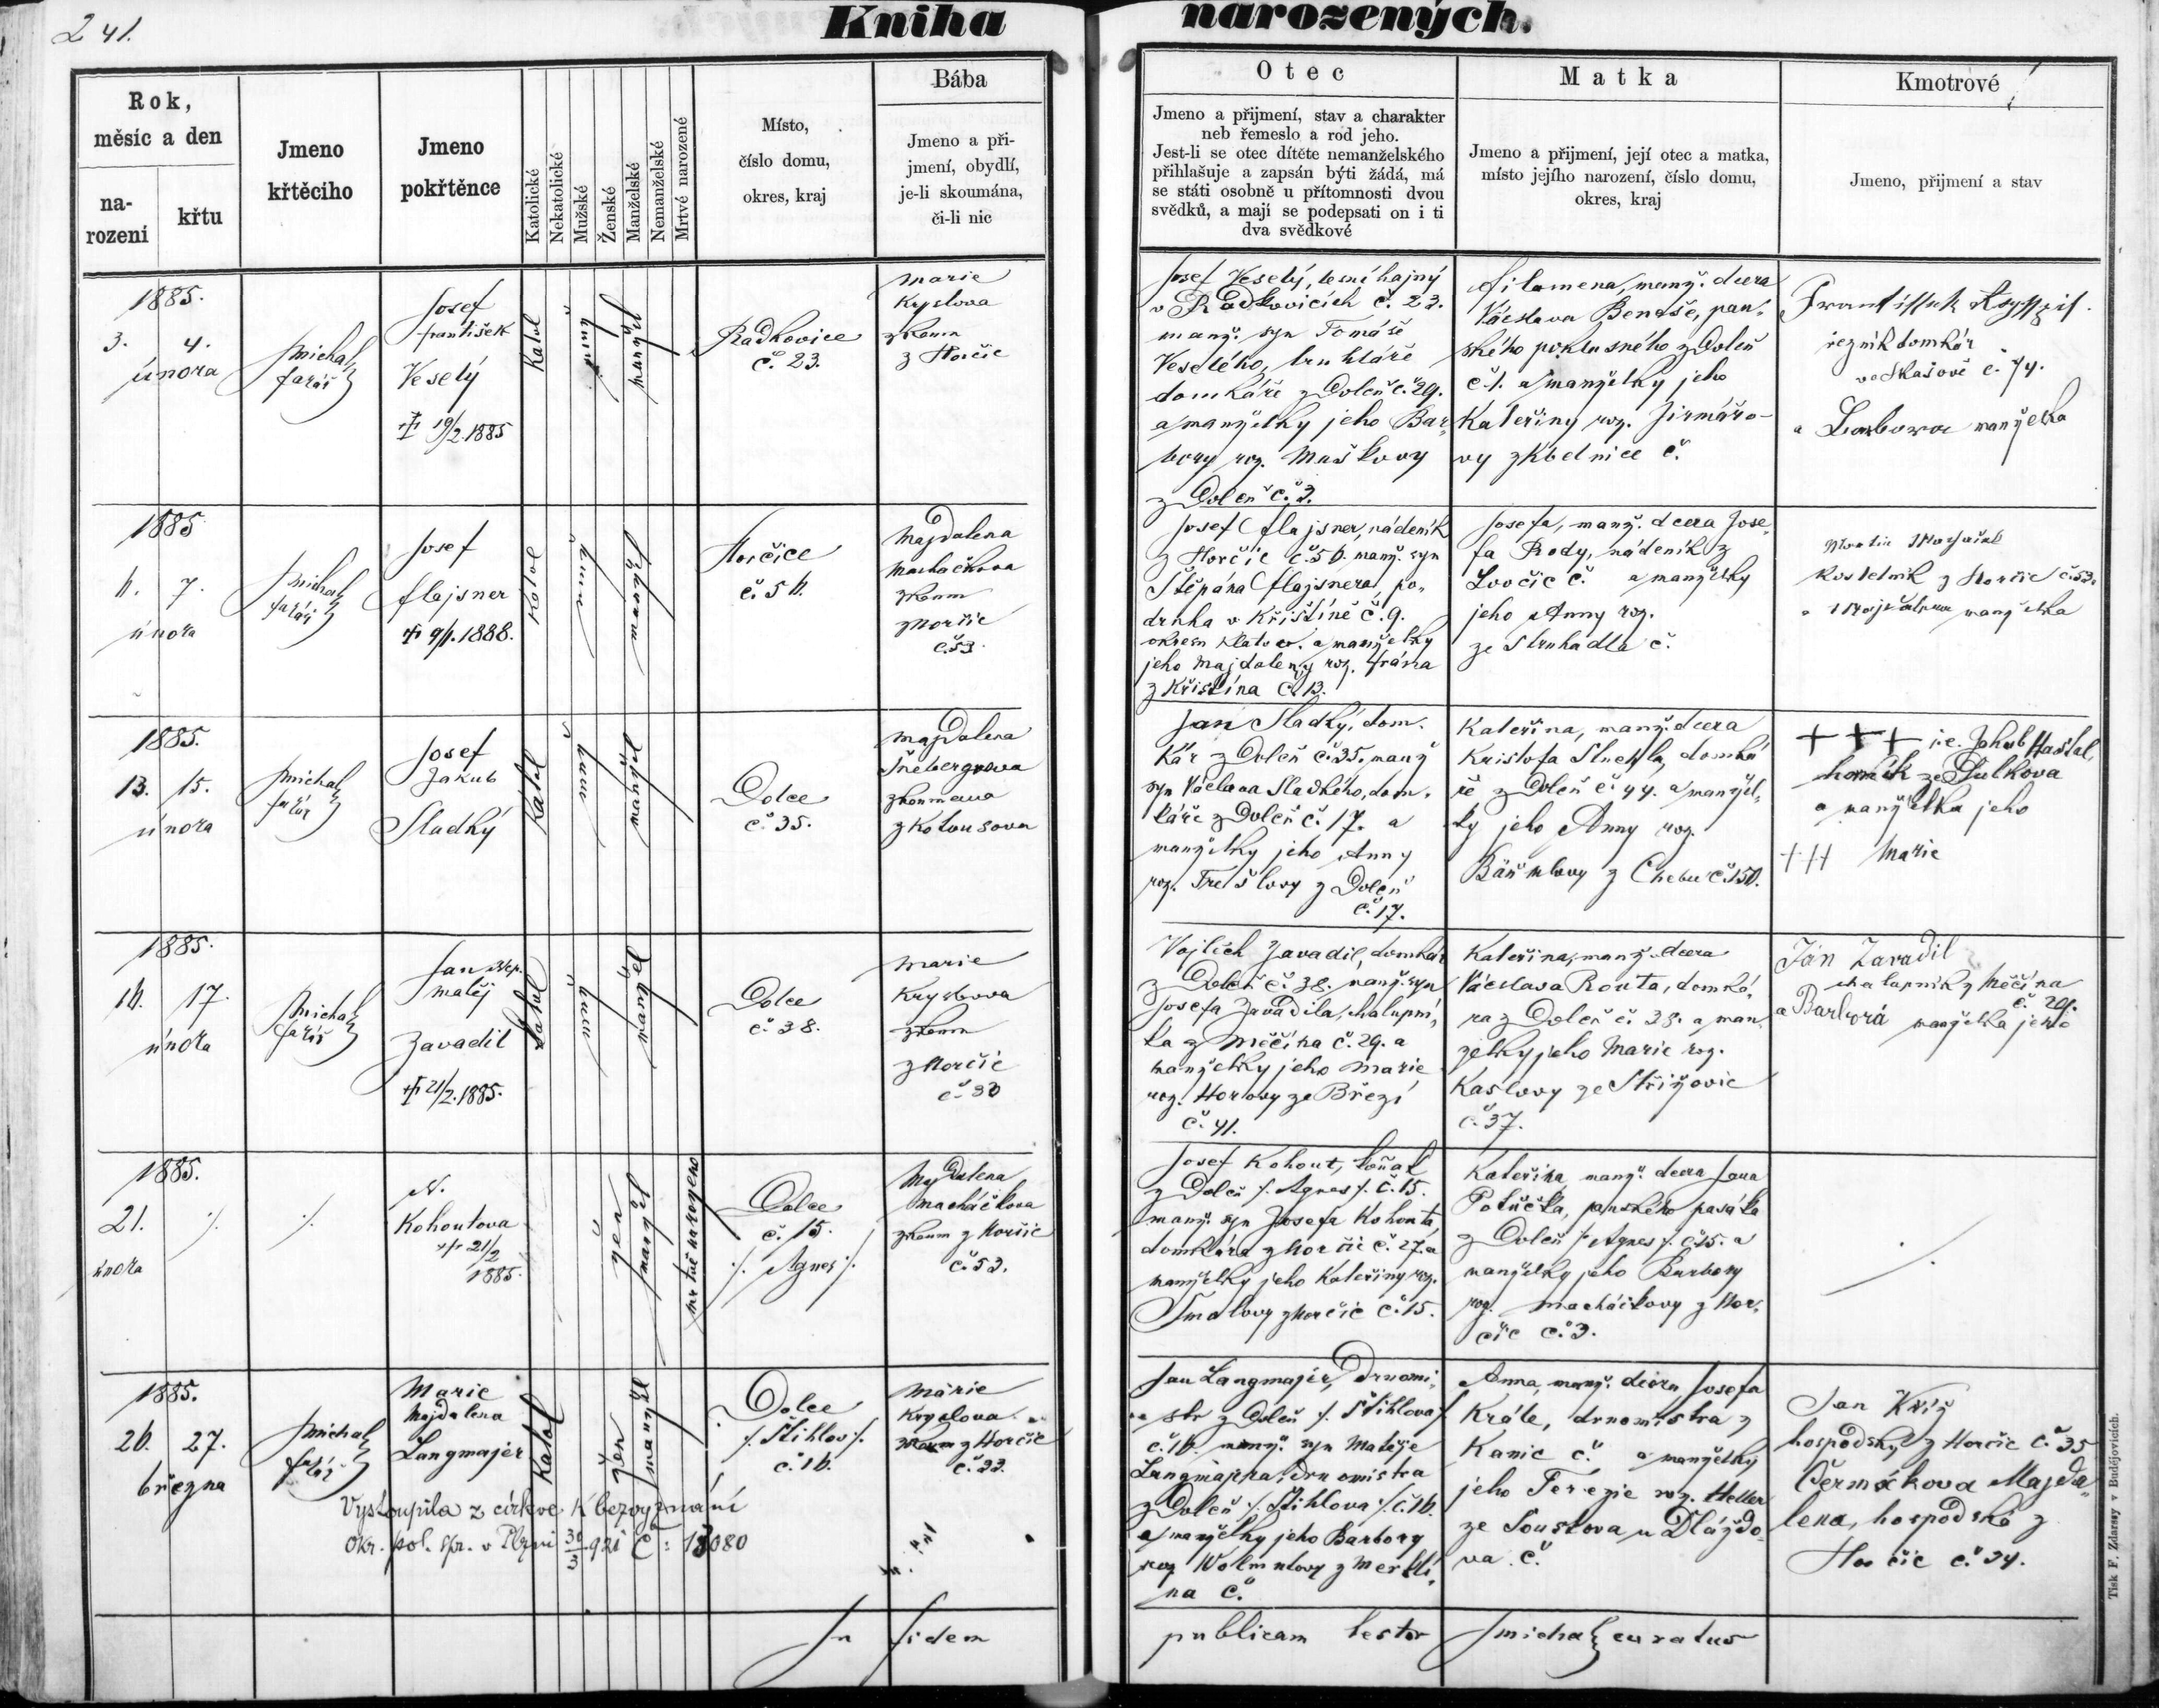 241.
Kniha narozených.
Rok,
měsíc a den
na-
rození
křtu
Jmeno
křtěcího
Jmeno
pokřtěnce
Katolické
Nekatolické
Mužské
Ženské
Manželské
Nemanželské
Mrtvé narozené
Místo,
číslo domu,
okres, kraj
Bába
Jmeno a při-
jmení, obydlí,
je-li skoumána,
či-li nic
Otec
Jmeno a přijmení, stav a charakter
neb řemeslo a rod jeho.
Jest-li se otec dítěte nemanželského
přihlašuje a zapsán býti žádá, má
se státi osobně u přítomnosti dvou
svědků, a mají se podepsati on i ti
dva svědkové
Matka
Jmeno a přijmení, její otec a matka,
místo jejího narození, číslo domu,
okres, kraj
Kmotrové
Jmeno, přijmení a stav
1885.
3. 4.
února
farář
Josef
František
Veselý
19/2 1885
katol
manžel
Radkovice
č. 23.
Marie
Kryslova
zkoum
z Horčic
Josef Veselý, lesní hajný
v Radkovicích č. 23.
manž. syn Tomáše
Veselého, truhláře
domkáře z Doleň č. 29.
a manželky jeho Bar-
bory roz. Maškovy
z Doleň č. 3.
Filomena, manž. dcera
Václava Beneše, pan-
ského poklusného z Doleň
č. 1. a manželky jeho
Kateřiny roz. Jirmářo-
vy z Kbelnice č.
řezník domkář
ve Skašově č. 74.
a manželka
1885
7.
února
farář
Josef
Flajsner
9/1. 1888.
katol
manžel
Horčice
č. 56.
Majdalena
Macháčkova
zkoum
z Horčic
č. 53.
Josef Flajsner, nádeník
z Horčic č. 56. manž. syn
Štěpána Flajsnera, po-
druha v Křištíně č. 9.
okresu Klatov. a manželky
jeho Majdaleny roz. Frána
z Křištína č. 13.
Josefa, manž. dcera Jose-
fa Rody, nádeník z
Lovčic č. a manželky
jeho Anny roz.
ze Struhadla č.
Martin
kostelník z Horčic č. 53.
manželka
1885.
13. 15.
února
farář
Josef
Jakub
Sladký
katol
manžel
Dolce
č. 35.
Majdalena
Šnebergrova
zkoumana
z Kotousova
Jan Sladký, dom-
kář z Doleň č. 35. manž
syn Václava Sladkého, dom-
káře z Doleň č. 17. a
manželky jeho Anny
roz. Trešlovy z Doleň
č. 17.
Kateřina, manž. dcera
Kristofa Stuchla, domká
ře z Doleň č. 44. a manžel-
ky jeho Anny roz.
z Chebu č. 150.
+++ Jakub Haštal,
horník ze Sulkova
a manželka jeho
+++ Marie
1885.
16. 17.
února
farář
Jan Nep.
Matěj
Zavadil
21/2. 1885.
katol
manžel
Dolce
č. 38.
Marie
Kryslova
zkoum
z Horčic
č. 30
Vojtěch Zavadil, domkář
z Doleň č. 38. manž. syn
Josefa Zavadila, chalupní-
ka z Měčína č. 29. a
manželky jeho Marie
roz. Horovy ze Březí
č. 41.
Kateřina, manž. dcera
Václava Routa, domká-
ra z Doleň č. 38. a man-
želky jeho Marie roz.
Kaslovy ze Střižovic
č. 37.
Jan Zavadil
chalupník z Měčína
č. 29.
a Barbora manželka jeho
1885.
21. ./. ./.
února
N.
Kohoutova
21/2
1885.
žen
manžel
mrtvě narozeno
Dolce
č. 15.
./. Agnes ./.
Majdalena
Macháčkova
zkoum z Horčic
č. 53.
Josef Kohout, koňak
z Doleň ./. Agnes ./. č. 15.
manž. syn Josefa Kohouta,
domkáře z Horčic č. 27. a
manželky jeho Kateřiny roz.
Šmatovy z Horčic č. 15.
Kateřina, manž. dcera Jana
Potůčka, panského pasáka
z Doleň ./. Agnes ./. č. 15. a
manželky jeho Barbory
roz. Macháčkovy z Hor-
čic č. 3.
./.
1885.
26. 27.
března
farář
Marie
Majdalena
Langmajer
katol
žen
manžel
Dolce
./. Štihlov ./.
č. 16.
Marie
Kryslova
zkoum z Horčic
č. 33.
Vystoupila z církve k bezvyznání
okr. pol. spr. v Plzni 30/3 921 č: 13080
Jan Langmajer, Drnomi-
str z Doleň ./. Štihlova ./.
č. 16. manž. syn Matěje
Langmajera, drnomistra
z Doleň ./. Štihlova ./. č. 16.
a manželky jeho Barbory
roz. z Merklí-
na č.
Anna, manž. dcera Josefa
Krále, drnomistra z
Kanic č. a manželky
jeho Terezie roz. Heller
ze Soustova u Dlaždo-
va č.
Jan Kříž
hospodský z Horčic č. 35
Čermáková Majda-
lena, hospodská z
Horčic č. 24.
In fidem publicam testor Smichal curatus
Tisk F. Zdarssy v Budějovicích.